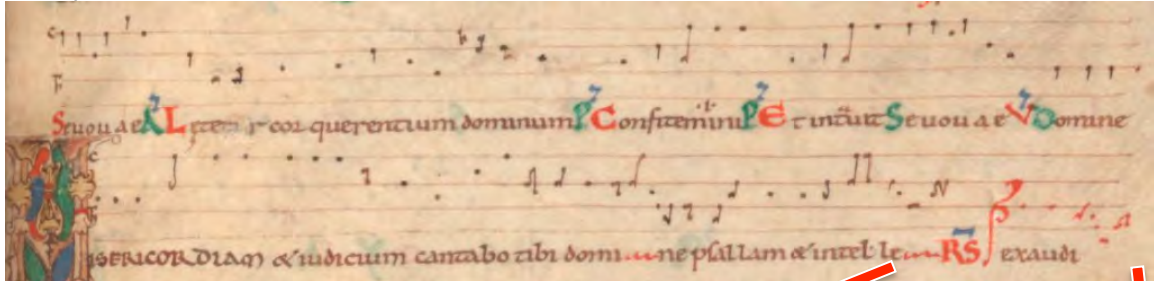 Seuouae A Letet͛ cor querentium dominum P Confitemini P Et intuit S euouae V Domine
MISERICORDIAM & iudicium cantabo tibi domine psallam & intelle RS exaudi